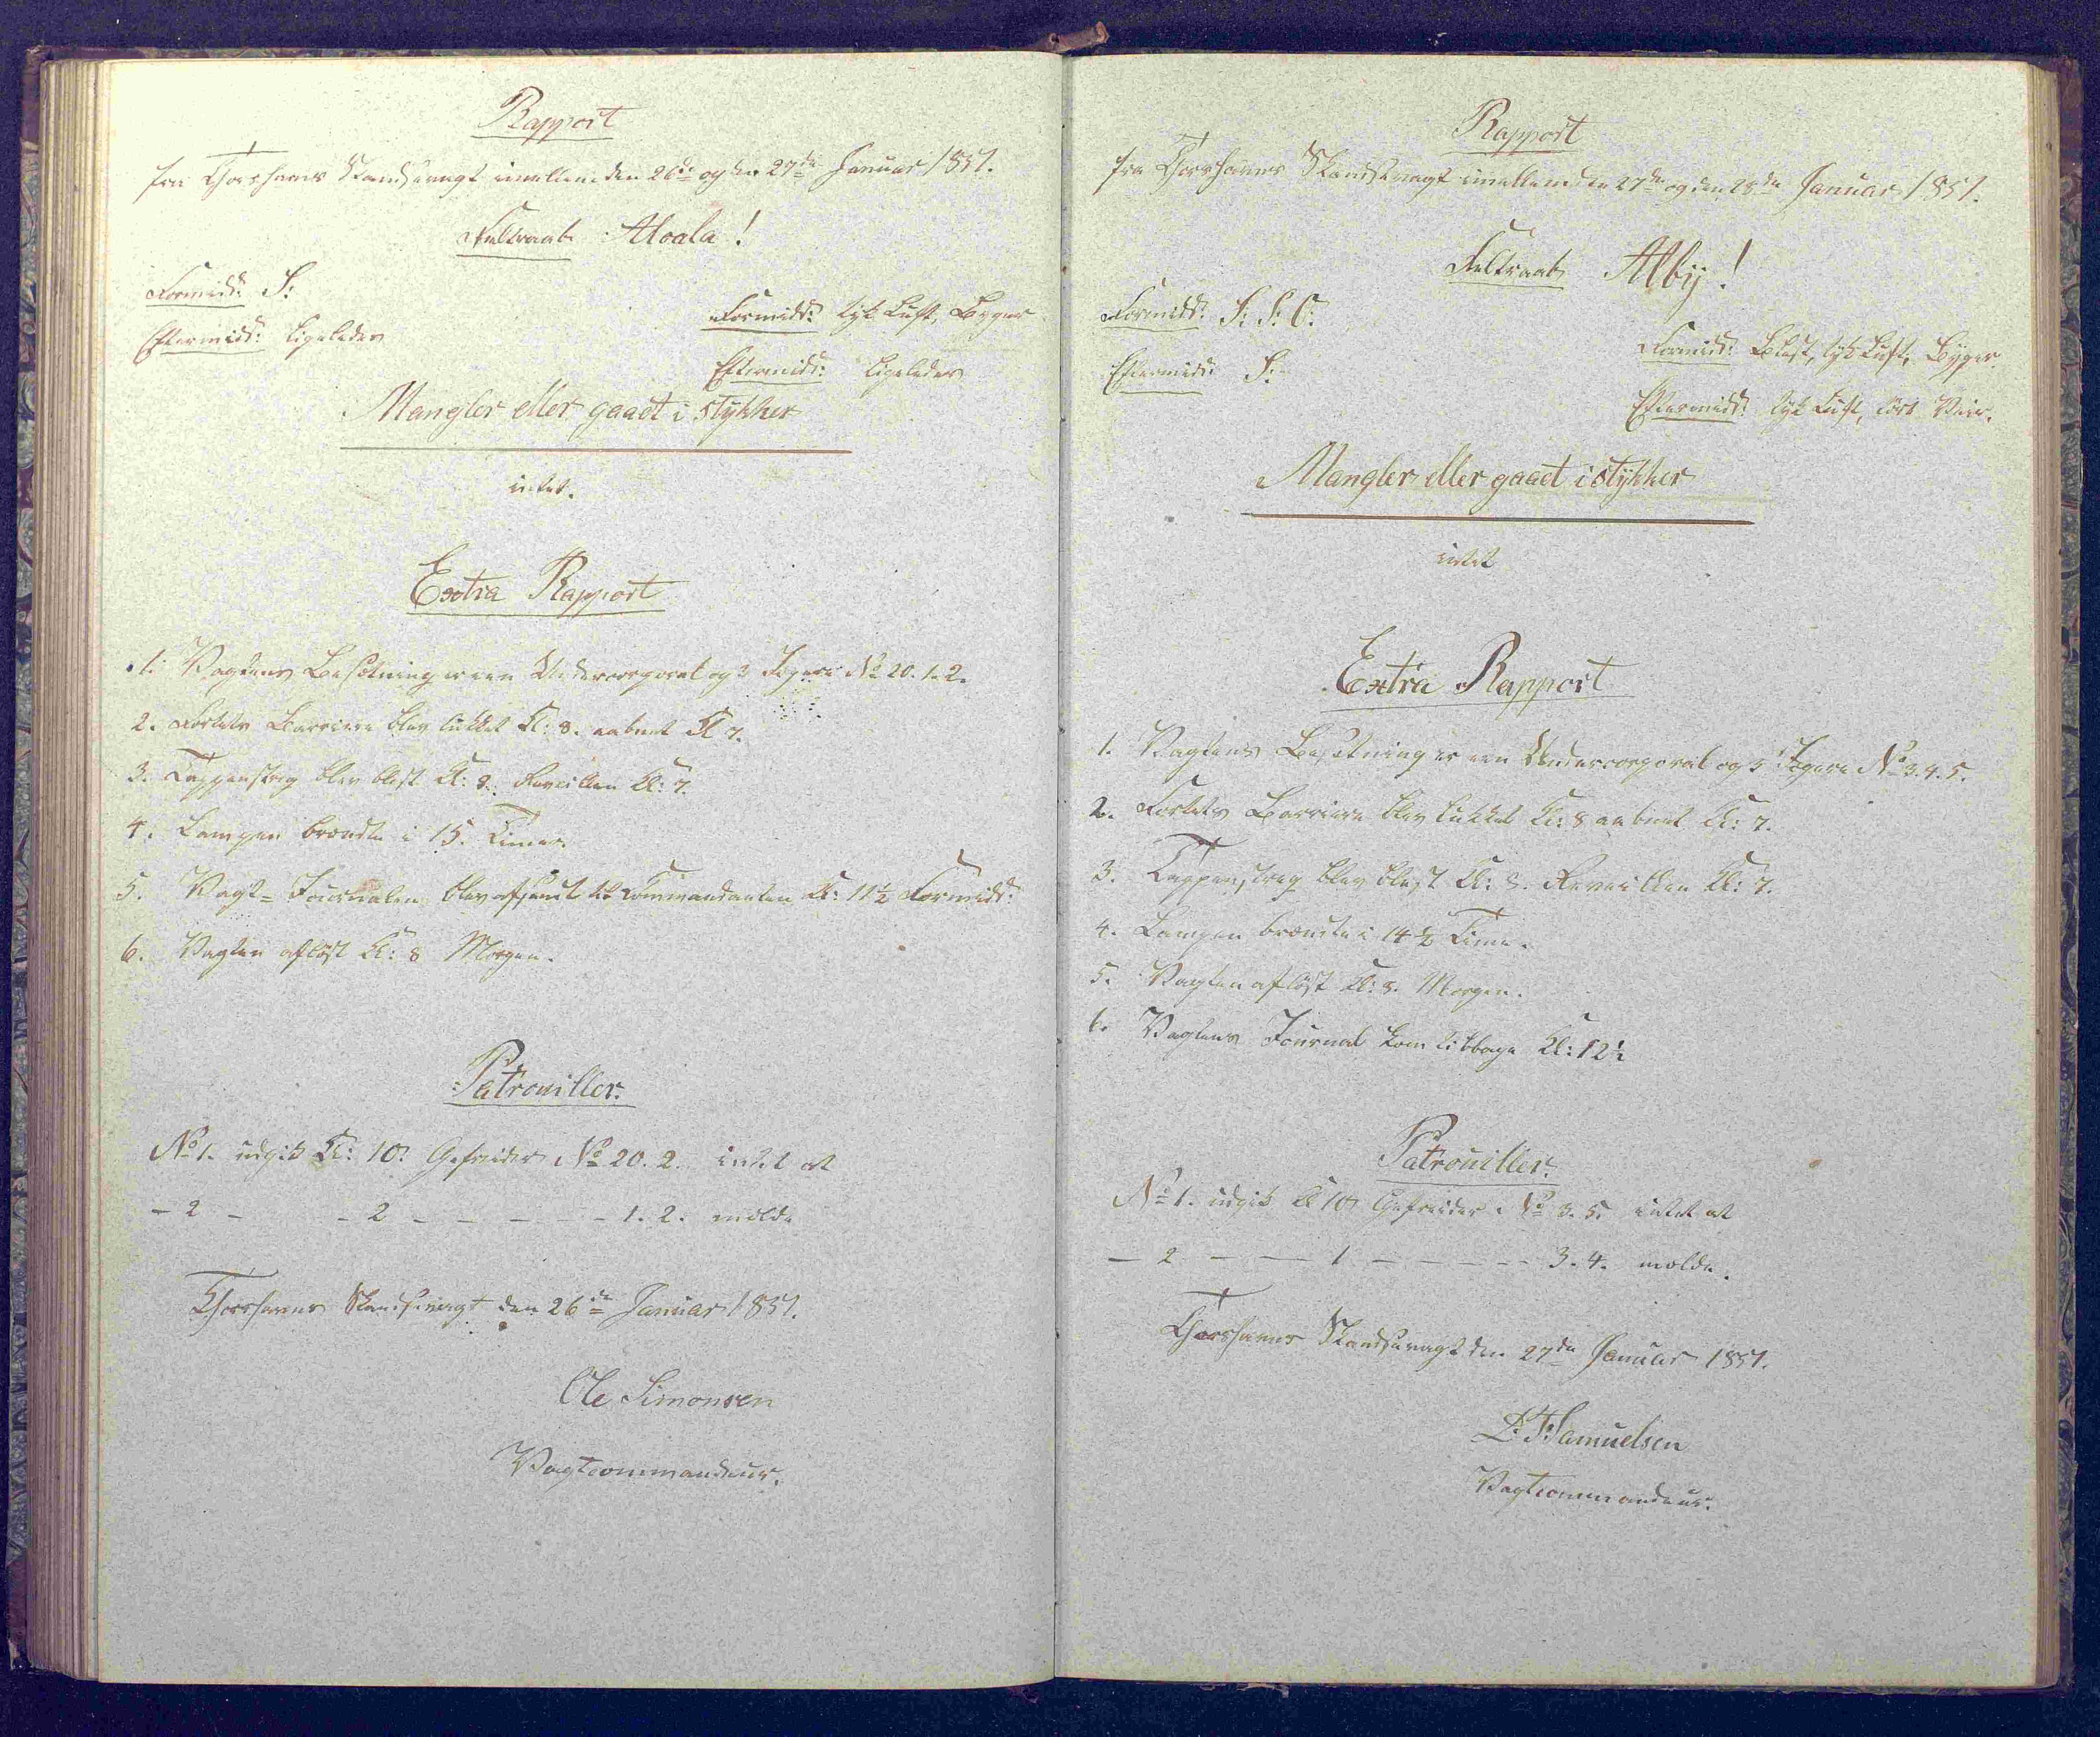 Rapport
fra Thorshavns Skandsevagt imellem den 26de og den 27de Januar 1851.
Feltraab Aloala!
Formidd: S:
Eftermidd: ligeledes
Formidd: tyk Luft, Byger
Eftermidd: ligeledes
Mangler eller gaaet i stykker
intet.
Extra Rapport
1. Vagtens Besætning er een Undercorporal og 3 Jægere No 20. 1. 2.
2. Fortets Barriere blev lukket Kl: 8. aabnet Kl 7.
3. Tappenstreg blev blæst Kl: 8. Reveillen Kl: 7.
4. Lampen brændte i 15. Timer.
5. Vagt-Journalen blev afsendt til Commandanten Kl: 11½ Formidd:
6. Vagten afløst Kl: 8 Morgen.
Patrouiller.
No 1. udgik Kl: 10. Gefreider No 20. 2. intet at
- 2 - - 2 - - - - - 1. 2. melde
Thorshavns Skandsevagt den 26de Januar 1851.
Ole Simonsen
Vagtcommandeur.
Rapport
fra Thorshavns Skandsevagt imellem den 27de og den 28de Januar 1851.
Feltraab Albÿ!
Formidd: S: S: O:
Eftermidd: S:
Formidd: Blæst, tyk Luft, Byger.
Eftermidd: tyk Luft, tørt Veir.
Mangler eller gaaet i stykker
intet
Extra Rapport
1. Vagtens Besætning er een Undercorporal og 3 Jægere No 3. 4. 5.
2. Fortets Barriere blev lukket Kl: 8 aabnet Kl: 7.
3. Tappenstreg blev blæst Kl: 8. Reveillen Kl: 7.
4. Lampen brændte i 14½ Time.
5. Vagten afløst Kl: 8. Morgen.
6. Vagtens Journal kom tilbage Kl: 12½
Patrouiller.
No 1. udgik Kl 10 Gefreider No 3. 5. intet at
- 2 - - 1 - - - - - 3. 4. melde.
Thorshavns Skandsevagt den 27de Januar 1851.
Samuelsen
Vagtcommandeur.